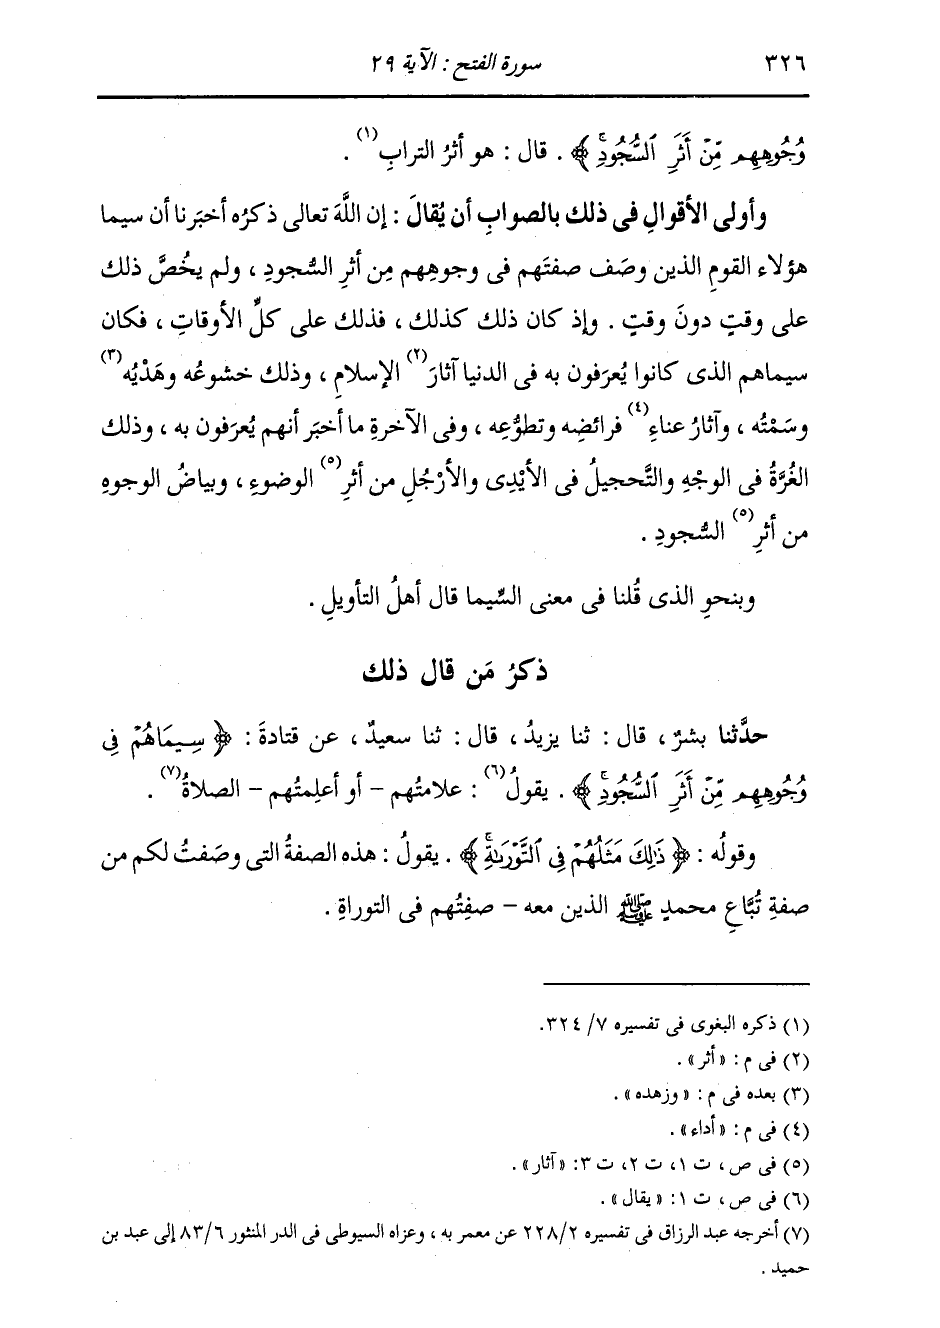 ٣٢٦ سورة الفتح : الآية ٢٩
وُجُوهِهِم مِّنْ أَثَرِ ٱلسُّجُودِۚ ﴾ . قال : هو أثرُ الترابِ(١) .
وأولى الأقوالِ فى ذلك بالصوابِ أن يُقالَ : إن اللَّهَ تعالى ذكرُه أخبَرنا أن سيما
هؤلاء القومِ الذين وصَف صفتَهم فى وجوهِهم مِن أثرِ السُّجودِ ، ولم يخُصَّ ذلك
على وقتٍ دونَ وقتٍ . وإذ كان ذلك كذلك ، فذلك على كلِّ الأوقاتِ ، فكان
سيماهم الذى كانوا يُعرَفون به فى الدنيا آثارَ(٢) الإسلامِ ، وذلك خشوعُه وهَدْيُه(٣)
وسَمْتُه ، وآثارُ عناءِ(٤) فرائضِه وتطوُّعِه ، وفى الآخرةِ ما أخبَر أنهم يُعرَفون به ، وذلك
الغُرَّةُ فى الوجْهِ والتَّحجيلُ فى الأيْدِى والأرْجُلِ من أثرِ(٥) الوضوءِ ، وبياضُ الوجوهِ
من أثرِ(٥) السُّجودِ .
وبنحوِ الذى قُلنا فى معنى السِّيما قال أهلُ التأويلِ .
ذكرُ مَن قال ذلك
حدَّثنا بشرٌ ، قال : ثنا يزيدُ ، قال : ثنا سعيدٌ ، عن قتادةَ : ﴿ سِيمَاهُمْ فِى
وُجُوهِهِم مِّنْ أَثَرِ ٱلسُّجُودِۚ ﴾ . يقولُ(٦) : علامتُهم – أو أعلِمتُهم – الصلاةُ(٧) .
وقولُه : ﴿ ذَٰلِكَ مَثَلُهُمْ فِى ٱلتَّوْرَىٰةِۚ ﴾ . يقولُ : هذه الصفةُ التى وصَفتُ لكم من
صفةِ تُبَّاعِ محمدٍ ﷺ الذين معه – صفِتُهم فى التوراةِ .
(١) ذكره البغوى فى تفسيره ٧/ ٣٢٤.
(٢) فى م : « أثر» .
(٣) بعده فى م : « وزهده» .
(٤) فى م : « أداء» .
(٥) فى ص ، ت ١، ت ٢، ت ٣: « آثار» .
(٦) فى ص ، ت ١: « يقال» .
(٧) أخرجه عبد الرزاق فى تفسيره ٢٢٨/٢ عن معمر به ، وعزاه السيوطى فى الدر المنثور ٨٣/٦ إلى عبد بن
حميد .